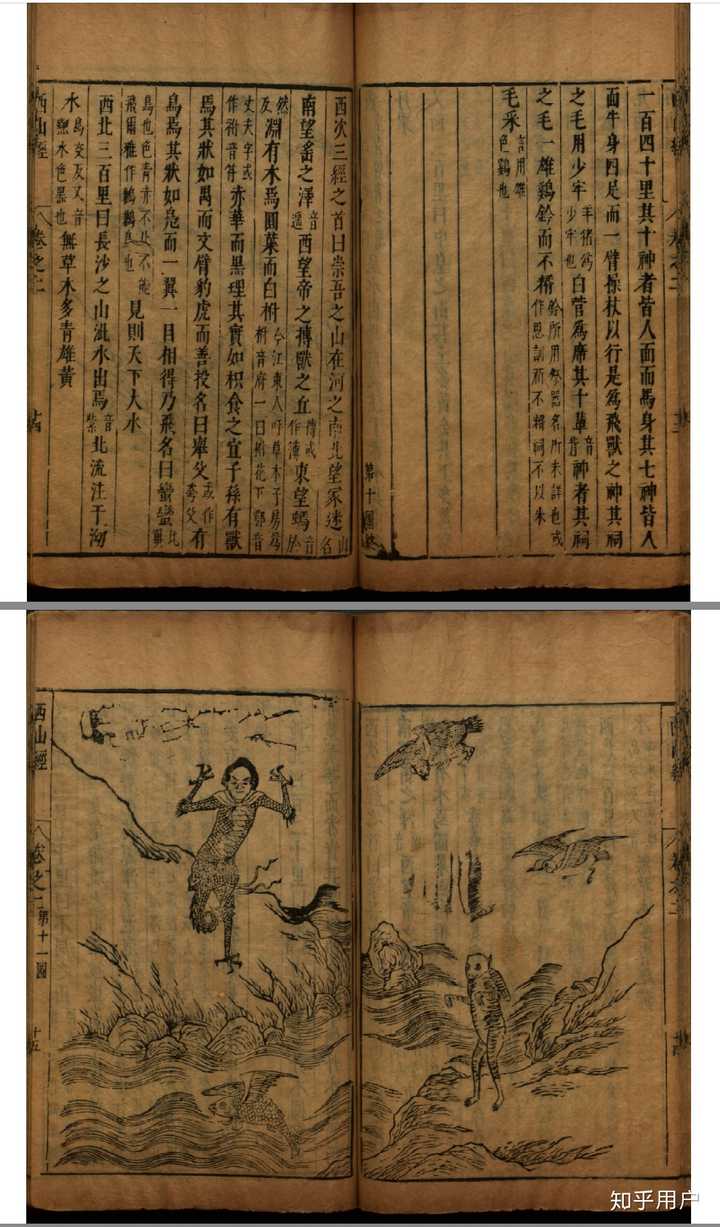 一百四十里其十神者皆人面而馬身其七神皆人
面牛身四足而一臂操杖以行是爲飛獸之神其祠
之毛用少牢羊猪爲少牢也白菅爲席其十輩音背神者其祠
之毛一雄鷄鈐而不糈鈐所用祭器名所未詳也或作思訓而不糈祠不以米
毛采言用雜色鷄也
第十圖
西次三經之首曰崇吾之山在河之南北望冢遂山名
南望䍃之澤音遥西望帝之搏獸之丘搏或作簿東望䗡音於
然反淵有木焉圓葉而白柎今江東人呼草木子房爲柎音府一曰柎花下鄂音
丈夫字或作拊音符赤華而黑理其實如枳食之宜子孫有獸
焉其狀如禺而文臂豹虎而善投名曰舉父或作夸父有
鳥焉其狀如鳧而一翼一目相得乃飛名曰蠻蠻比翼
鳥也色青赤不比不能飛爾雅作鶼鶼鳥也見則天下大水
西北三百里曰長沙之山泚水出焉音紫北流注于泑
水烏交反又音黝水色黑也無草木多青雄黃
西山經
卷之二
廿四
西山經
卷之二
第十一圖
十五
知乎用户